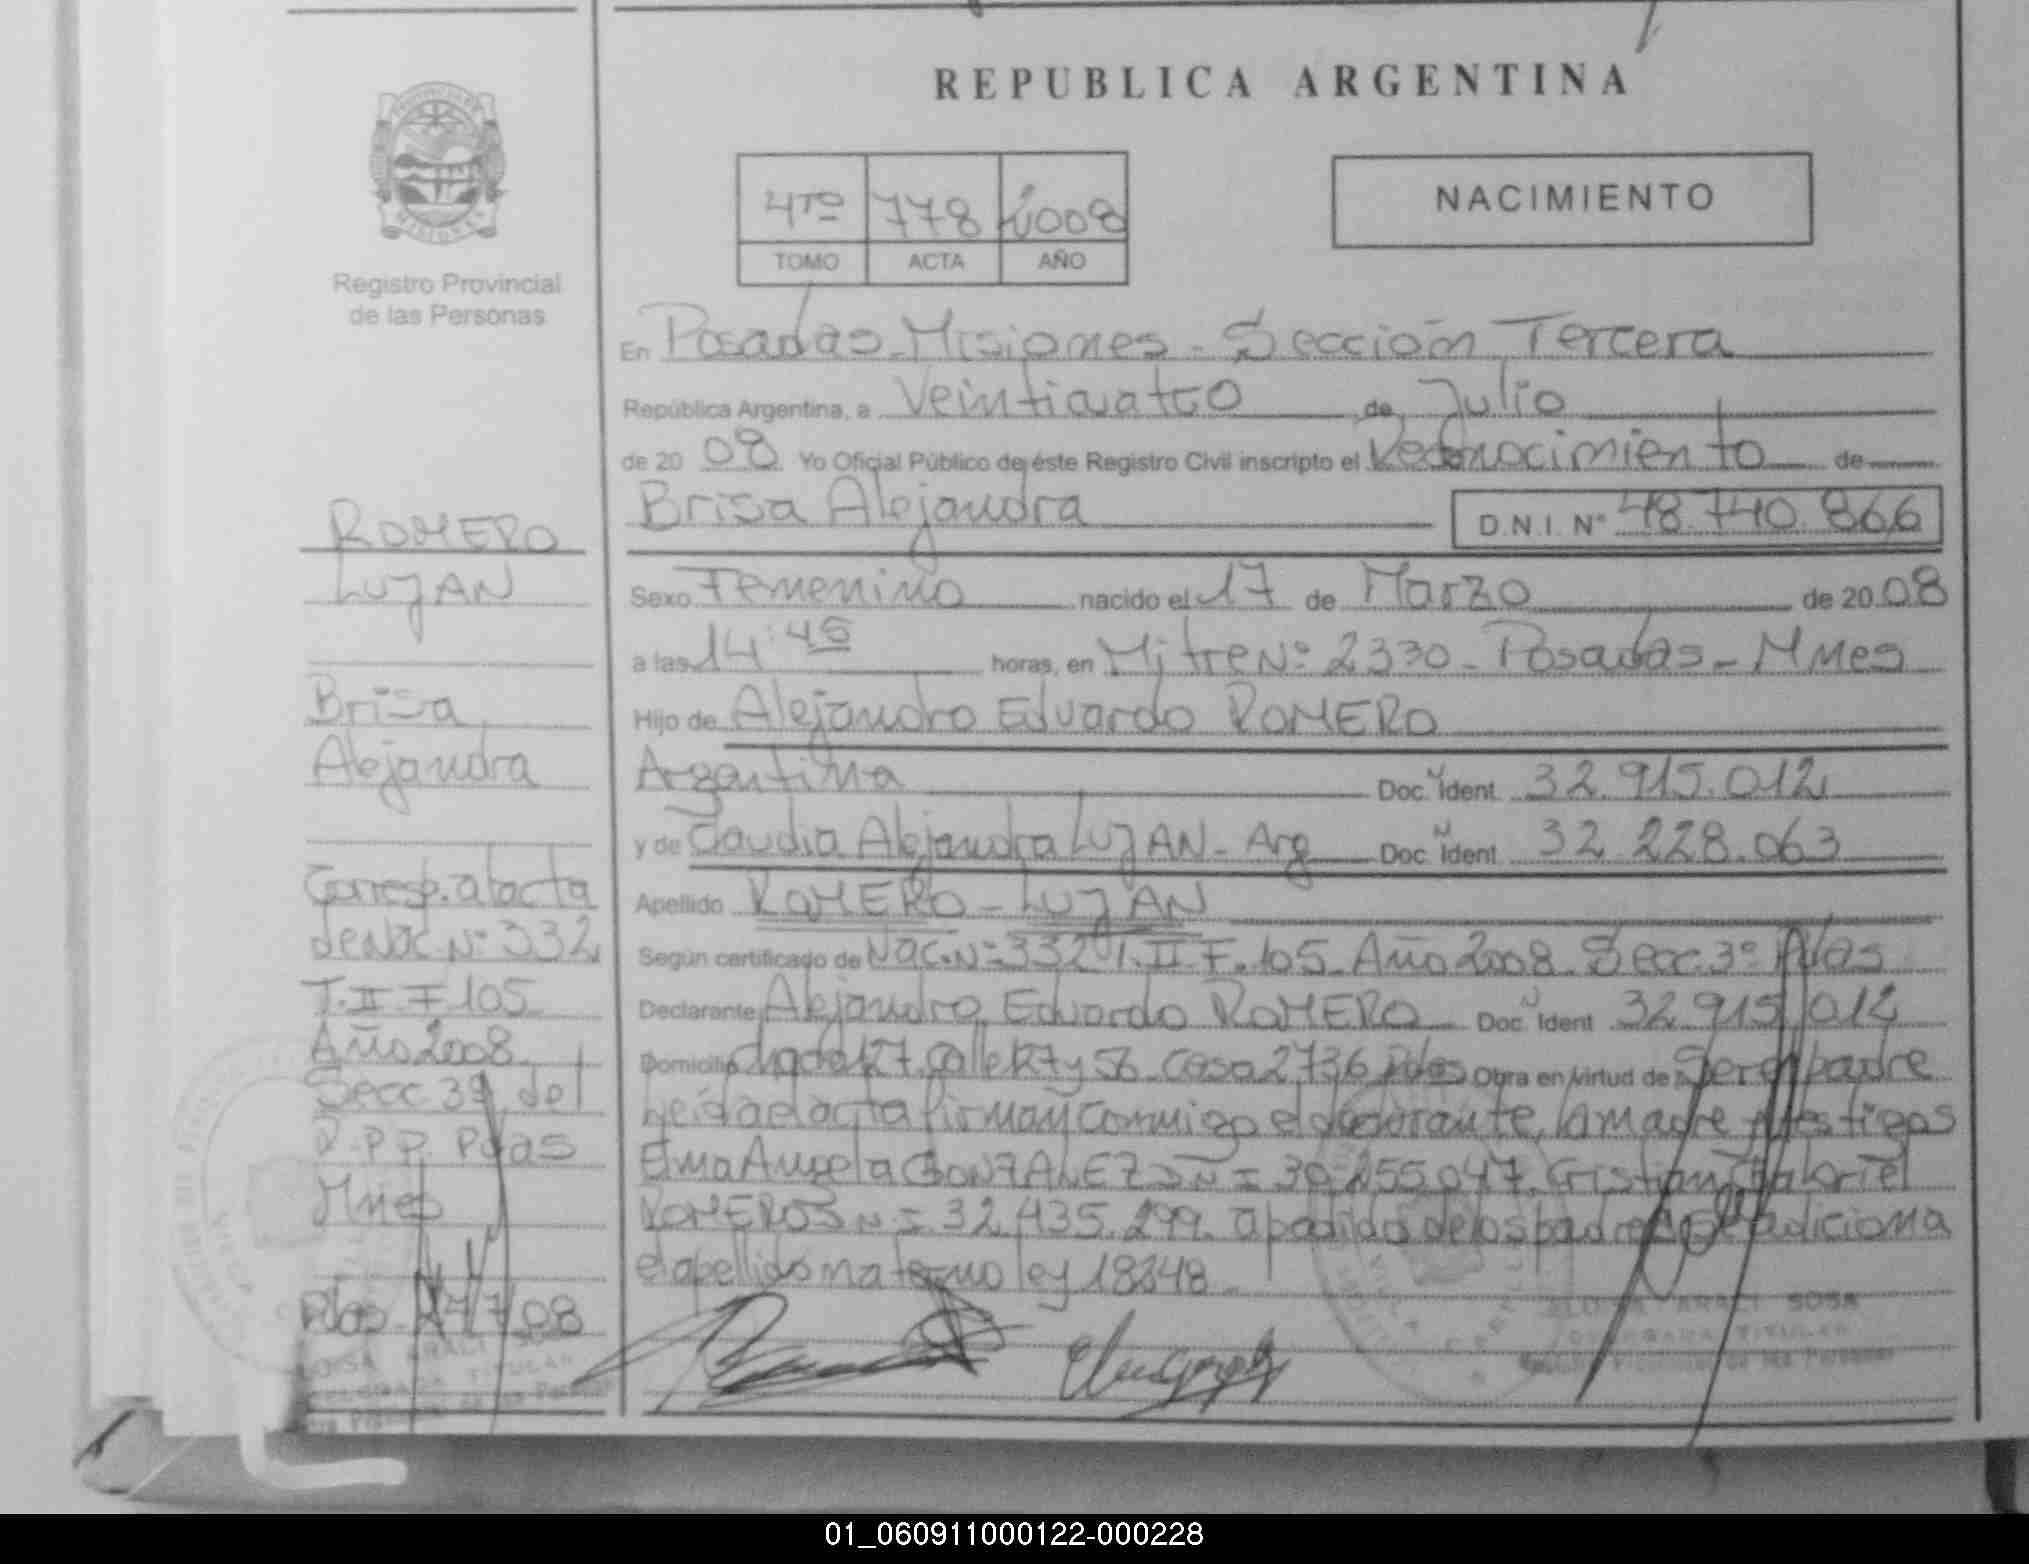 REPUBLICA ARGENTINA
NACIMIENTO
4TO 778 2008
TOMO ACTA AÑO
Registro Provincial
de las Personas
ROMERO
LUJAN
Brisa
Alejandra
Corresp. al acta
de Nac. Nº 332
T. II F 105
Año 2008
Secc 3ª del
R.P.P. Pdas
Mnes
Pdas 24/7/08
En Posadas - Misiones - Sección Tercera
República Argentina, a Veinticuatro de Julio
de 20 08 Yo Oficial Público de éste Registro Civil inscripto el Reconocimiento de
Brisa Alejandra D.N.I. Nº 48.740.866
Sexo Femenino nacido el 17 de Marzo de 20 08
a las 14:45 horas, en Mitre Nº 2330 - Posadas - Mnes
Hijo de Alejandro Eduardo ROMERO
Argentina Doc. Ident. 32.915.012
y de Claudia Alejandra LUJAN - Arg Doc. Ident. 32.228.063
Apellido ROMERO - LUJAN
Según certificado de Nac. Nº 332 T. II F. 105 Año 2008 Secc. 3º Pdas
Declarante Alejandro Eduardo ROMERO Doc. Ident 32.915.012
Domicilio Chacra 127 Calle 127 y 56 Casa 2736 Pdas Obra en virtud de Ser el padre
Leida el acta firman conmigo el declarante, la madre y testigos
Elma Angela GONZALEZ DNº 30.255.047 Cristian Gabriel
ROMERO DNº 32.435.299. a pedido de los padres se adiciona
el apellido materno ley 18248
ARALI SOSA
DELEGADA TITULAR
Registro Provincial de las Personas
ARALI
TITULAR
01_060911000122-000228